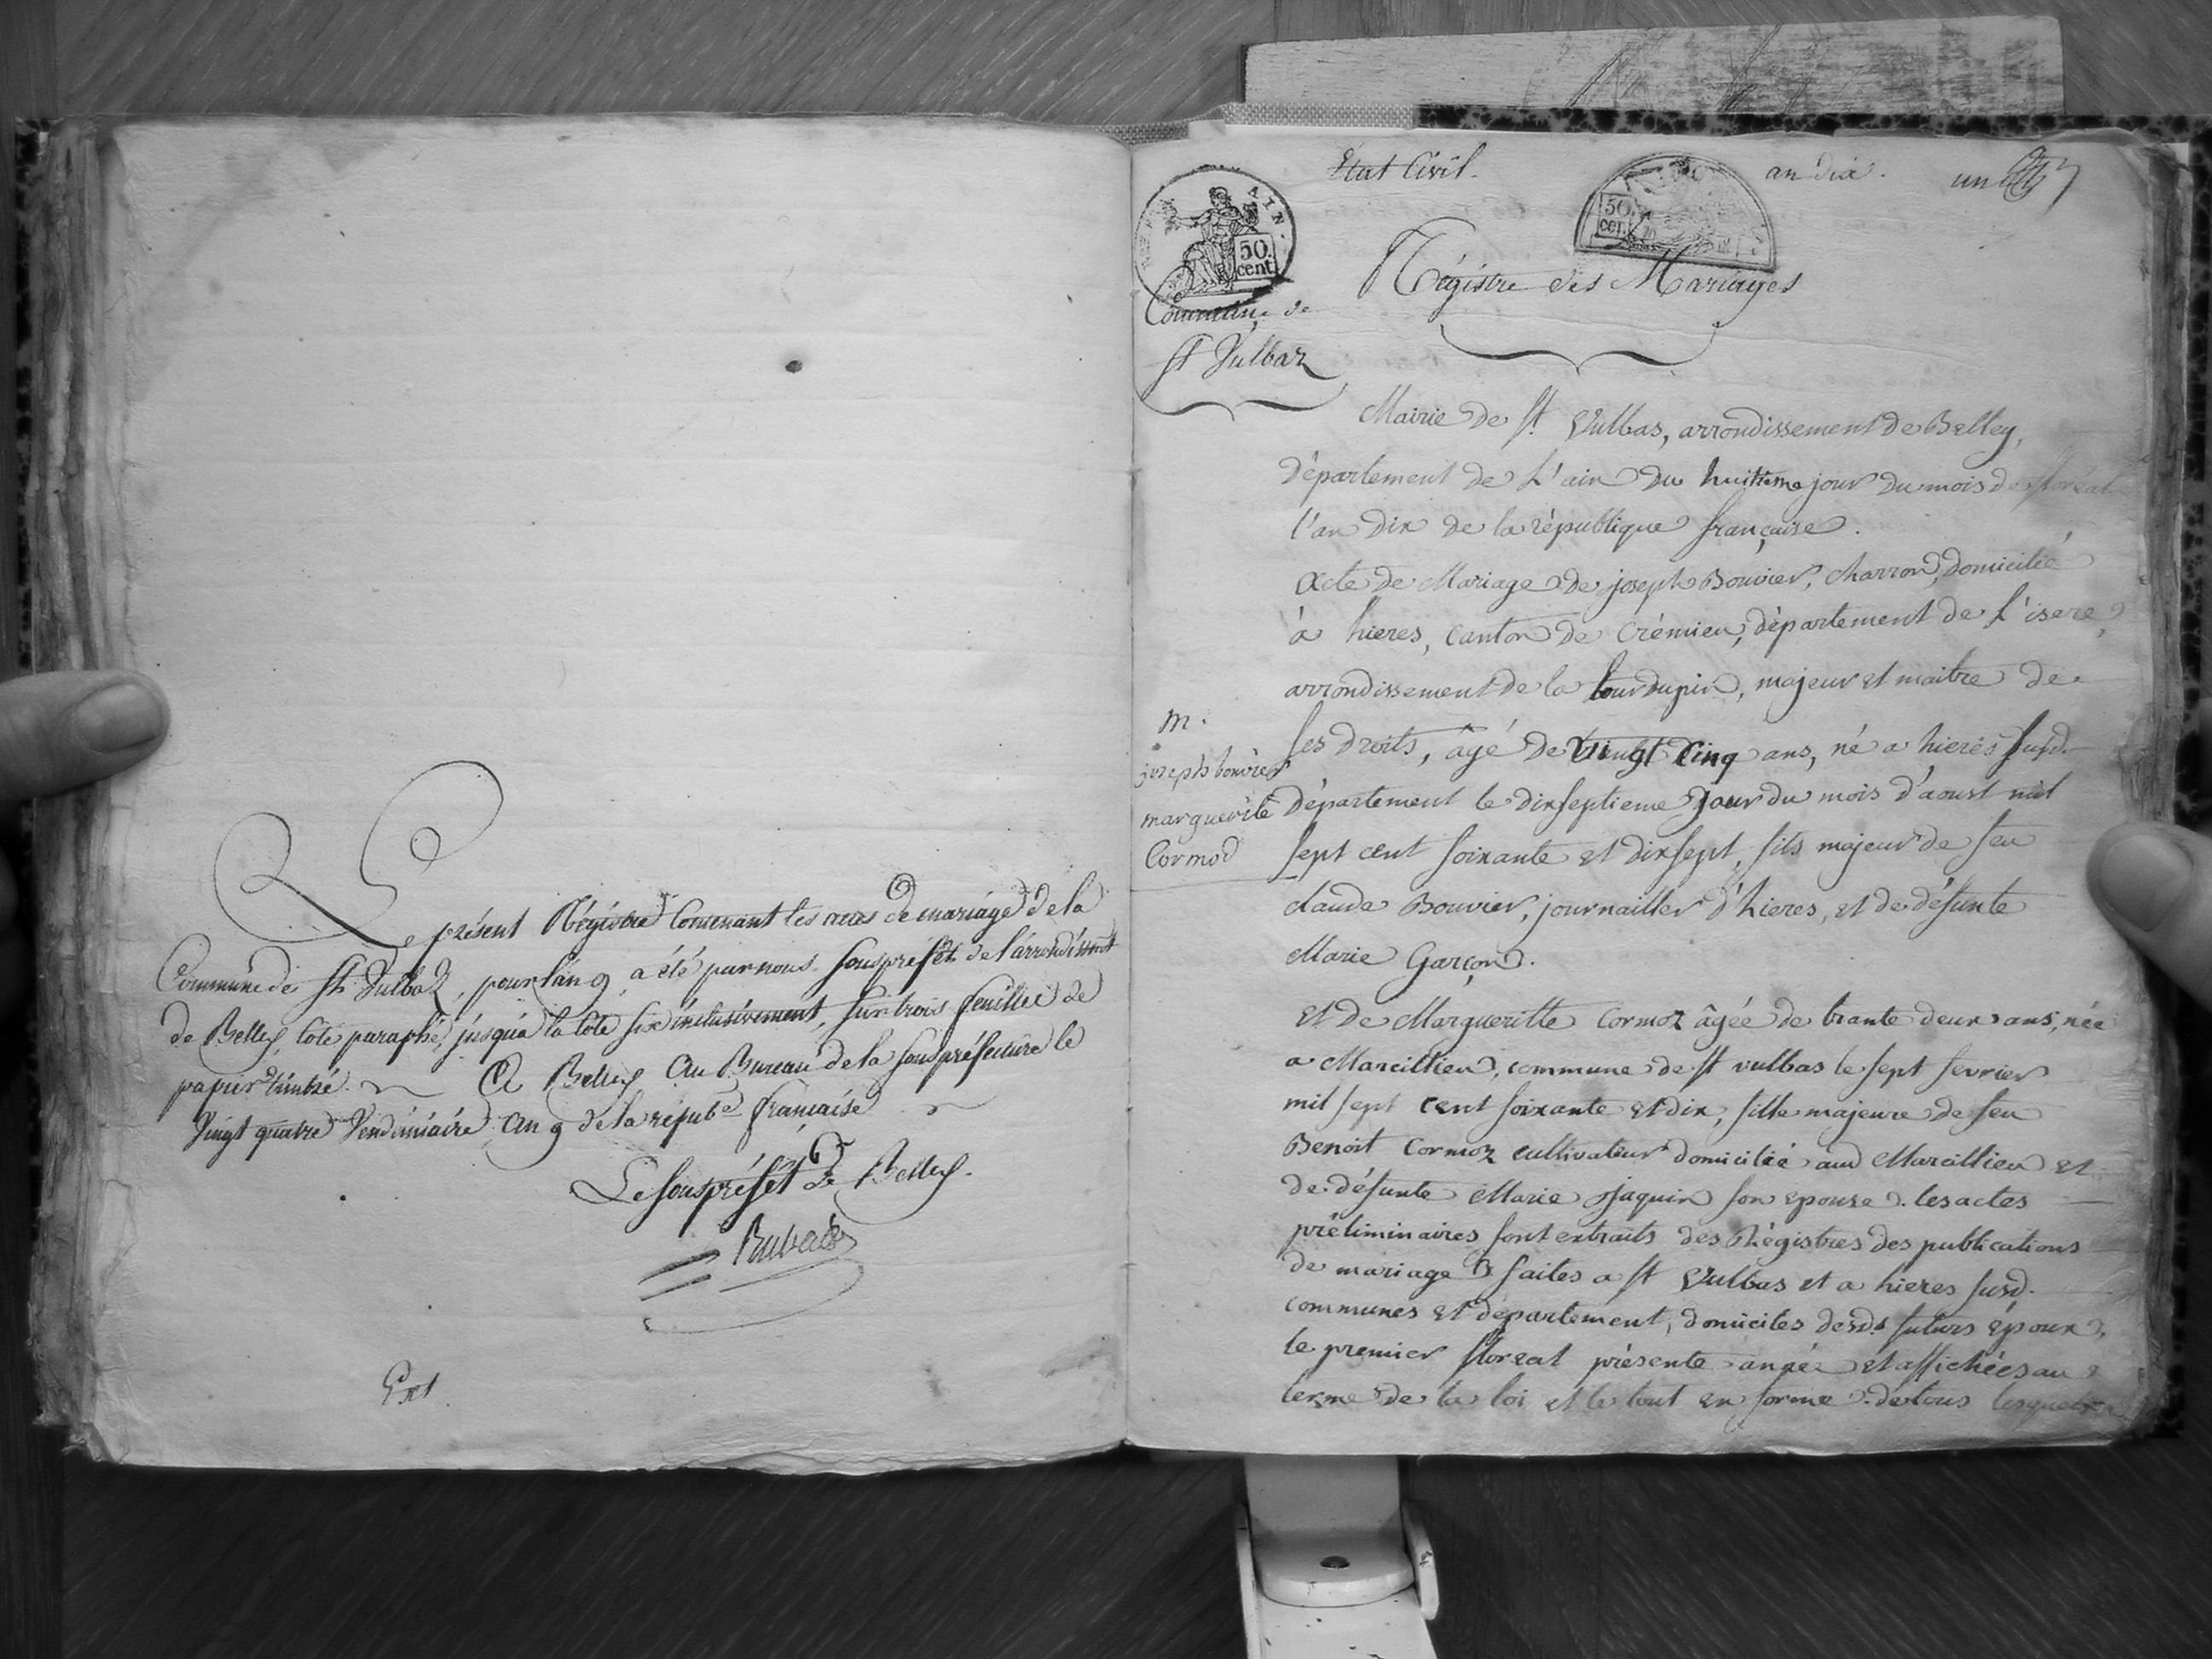 Le présent Régistre Contenant les actes de mariage de la
Commune de St Vulbaz, pour l'an 9, a été par nous souspréfet de l'arrondissmt
de Belley, coté paraphé, jusqu'a la cote six inclusivement, sur trois feuilles de
papier timbré. A Belley Au Bureau de la souspréfecture le
Vingt quatre Vendémiaire an 9 de la répube française
Le souspréfet de Belley.
Ext
Etat Civil. an dix. un
AIN.
50 cent
50
Régistre des Mariages
Commune de
St Vulbaz
Mairie de St Vulbas, arrondissement de Belley,
département de L'ain du huitieme jour du mois de floreal
l'an dix de la république française.
Acte de Mariage de joseph Bouvier, charron, domicilié
à hieres, canton de Crémieu, département de L'isere,
arrondissement de la tourdupin, majeur et maitre de
ses droits, âgé de vingt cinq ans, né a hieres susd.
département le dixseptieme jour du mois d'aoust mil
sept cent soixante et dixsept, fils majeur de feu
claude Bouvier, journailler d'hieres, et de défunte
Marie Garçon.
m.
joseph bouvier
marguerite
Cormod
et de Margueritte Cormoz âgée de trante deux ans, née
a Marcillieu, commune de st vulbas le sept fevrier
mil sept cent soixante et dix, fille majeure de feu
Benoit Cormoz cultivateur domicilié aud Marcillieu et
de défunte Marie Jaquin son epouse. les actes
préliminaires sont extraits des Régistres des publications
de mariage faites a st Vulbas et a hieres susd.
communes et département, domiciles desds futurs époux,
le premier floreal présente année et affichées au
terme de la loi et le tout en forme. de tous lesquels